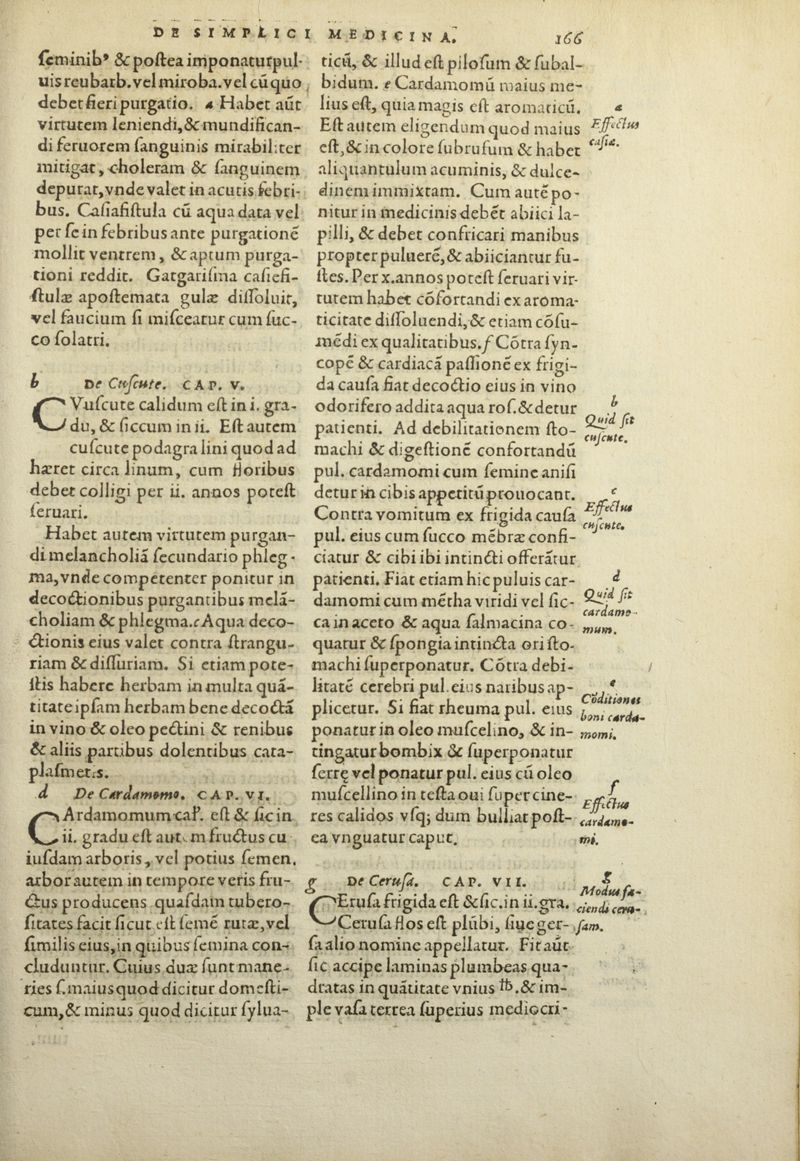 DE SIMPLICI MEDICINA. 166
feminib⁹ & postea imponatur pul-
uis reubarb. vel miroba. vel cū quo
debet fieri purgatio. a Habet aūt
virtutem leniendi, & mundifican-
di feruorem sanguinis mirabiliter
mitigat, choleram & sanguinem
depurat, vnde valet in acutis febri-
bus. Casiafistula cū aqua data vel
per se in febribus ante purgationē
mollit ventrem, & aptum purga-
tioni reddit. Gargarisma casiefi-
stulæ apostemata gulæ dissoluit,
vel faucium si misceatur cum suc-
co solatri.
b De Cuscute. CAP. V.
CVuscute calidum est in i. gra-
du, & siccum in ii. Est autem
cuscute podagra lini quod ad
hæret circa linum, cum floribus
debet colligi per ii. annos potest
seruari.
Habet autem virtutem purgan-
di melancholiā secundario phleg-
ma, vnde competenter ponitur in
decoctionibus purgantibus melā-
choliam & phlegma. c Aqua deco-
ctionis eius valet contra strangu-
riam & dissuriam. Si etiam pote-
stis habere herbam in multa quā-
titate ipsam herbam bene decoctā
in vino & oleo pectini & renibus
& aliis partibus dolentibus cata-
plasmetis.
d De Cardamomo. CAP. VI.
CArdamomum cal'. est & sic in
ii. gradu est autem fructus cu
iusdam arboris, vel potius semen,
arbor autem in tempore veris fru-
ctus producens quasdam tubero-
sitates facit sicut est semē rutæ, vel
similis eius, in quibus semina con-
cluduntur. Cuius duæ sunt mane-
ries s. maius quod dicitur domesti-
cum, & minus quod dicitur sylua-
ticū, & illud est pilosum & subal-
bidum. e Cardamomū maius me-
lius est, quia magis est aromaticū.
Est autem eligendum quod maius
est, & in colore subrufum & habet
aliquantulum acuminis, & dulce-
dinem immixtam. Cum autē po-
nitur in medicinis debēt abiici la-
pilli, & debet confricari manibus
propter puluerē, & abiiciantur fu-
stes. Per x. annos potest seruari vir-
tutem habet cōfortandi ex aroma-
ticitate dissoluendi, & etiam cōsu-
mēdi ex qualitatibus. f Cōtra syn-
copē & cardiacā passionē ex frigi-
da causa fiat decoctio eius in vino
odorifero addita aqua ros. & detur
patienti. Ad debilitationem sto-
machi & digestionē confortandū
pul. cardamomi cum semine anisi
detur in cibis appetitū prouocant.
Contra vomitum ex frigida causa
pul. eius cum succo mēbræ confi-
ciatur & cibi ibi intincti offerātur
patienti. Fiat etiam hic puluis car-
damomi cum mētha viridi vel sic-
ca in aceto & aqua salmacina co-
quatur & spongia intincta ori sto-
machi superponatur. Cōtra debi-
litatē cerebri pul. eius naribus ap-
plicetur. Si fiat rheuma pul. eius
ponatur in oleo muscelino, & in-
tingatur bombix & superponatur
ferrę vel ponatur pul. eius cū oleo
muscellino in testa oui super cine-
res calidos vsq; dum bulliat post-
ea vnguatur caput.
g De Cerusa. CAP. VII.
CErusa frigida est & sic. in ii. gra.
Cerusa flos est plūbi, siue ger-
sa alio nomine appellatur. Fit aūt
sic accipe laminas plumbeas qua-
dratas in quātitate vnius ℔. & im-
ple vasa terrea superius mediocri-
a
Effectus
casiæ.
b
Quid sit
cuscute.
c
Effectus
cuscute.
d
Quid sit
cardamo-
mum.
e
Cōditiones
boni carda-
momi.
f
Effectus
cardamo-
mi.
g
Modus fa-
ciendi ceru-
sam.